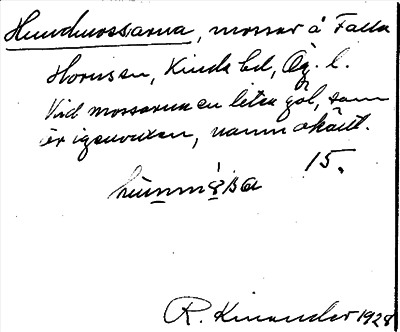 Hundmossarna, mossar å Falla
Hornsen, Kinda hd, Ög. l.
Vid mossarna en liten göl, som
är igenvuxen, namn okänt.
15.
R. Kinander 1928